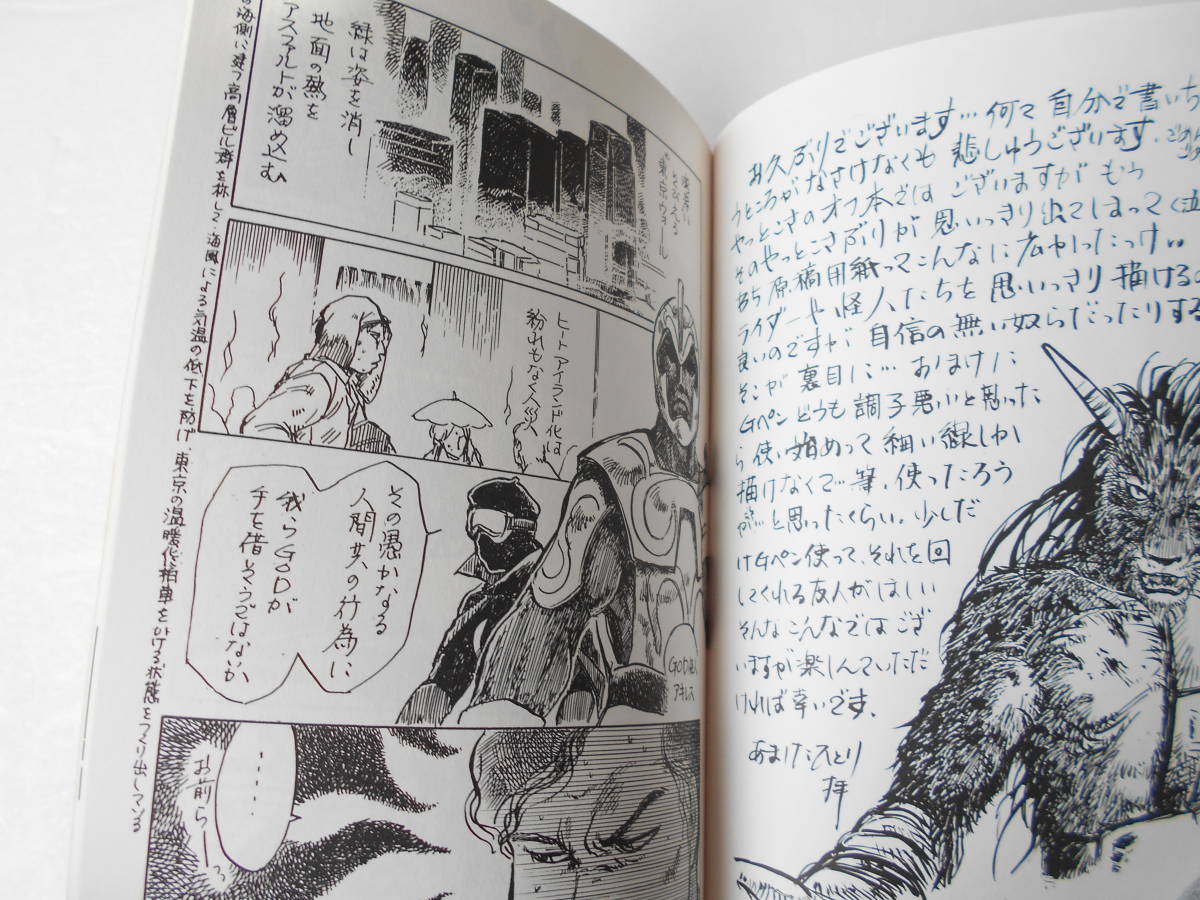 お久ぶりでございます…何て自分で書いち
うところがなさけなくも悲しゅうございます、
やっとこさのオフ本ではございますがもう
そのやっとこさぶりが思いっきり出てしまって
原稿用紙ってこんなに広かったっけ
ライダーや怪人たちを思いっきり描けるの
良いのですが自信の無い奴らだったりする
そこが裏目に…おまけに
Gペンどうも調子悪いと思った
ら使い始めって細い線しか
描けなくて…筆、使ったろう
が…と思ったくらい。少しだ
けGペン使って、それを回
してくれる友人がほしい
そんなこんなではござ
いますが楽しんでいただ
ければ幸いです、
拝
そびえる
東京ウォール
緑は姿を消し
地面の熱を
アスファルトが溜め込む
ヒートアイランド化は
紛れもなく人災
その愚かなる
人間共の行為に
我らGODが
手を借そうではないか
アキレス
‥‥
お前ら―っ
海側に建つ高層ビル群を称して、海風による気温の低下を防げ、東京の温暖化に拍車をかける状態をつくり出している